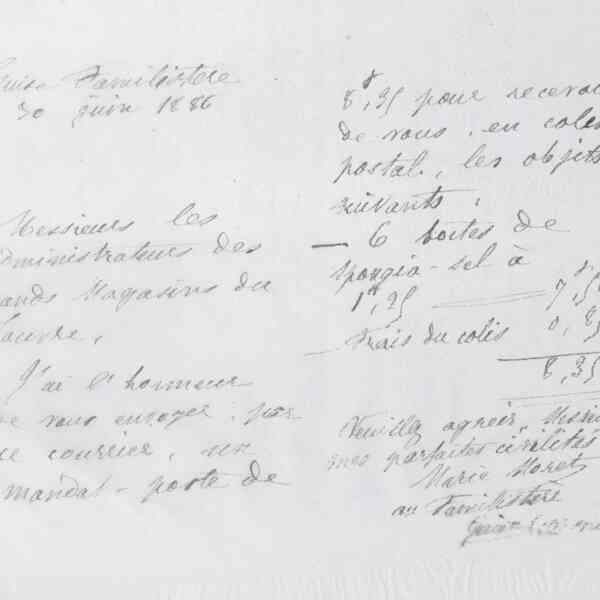 Guise Familistère
30 juin 1886
Messieurs les
administrateurs des
Grands Magasins du
Louvre,
J'ai l'honneur
de vous envoyer, par
ce courrier, un
mandat-poste de
8f,35 pour recevoir
de vous, en colis
postal, les objets
suivants,
— 6 boîtes de
spongio-sel à
1f,25 7f,50
— Frais du colis 0,85
8,35
Veuillez agréer, Messieurs
mes parfaites civilités
Marie Moret
au Familistère
Guise